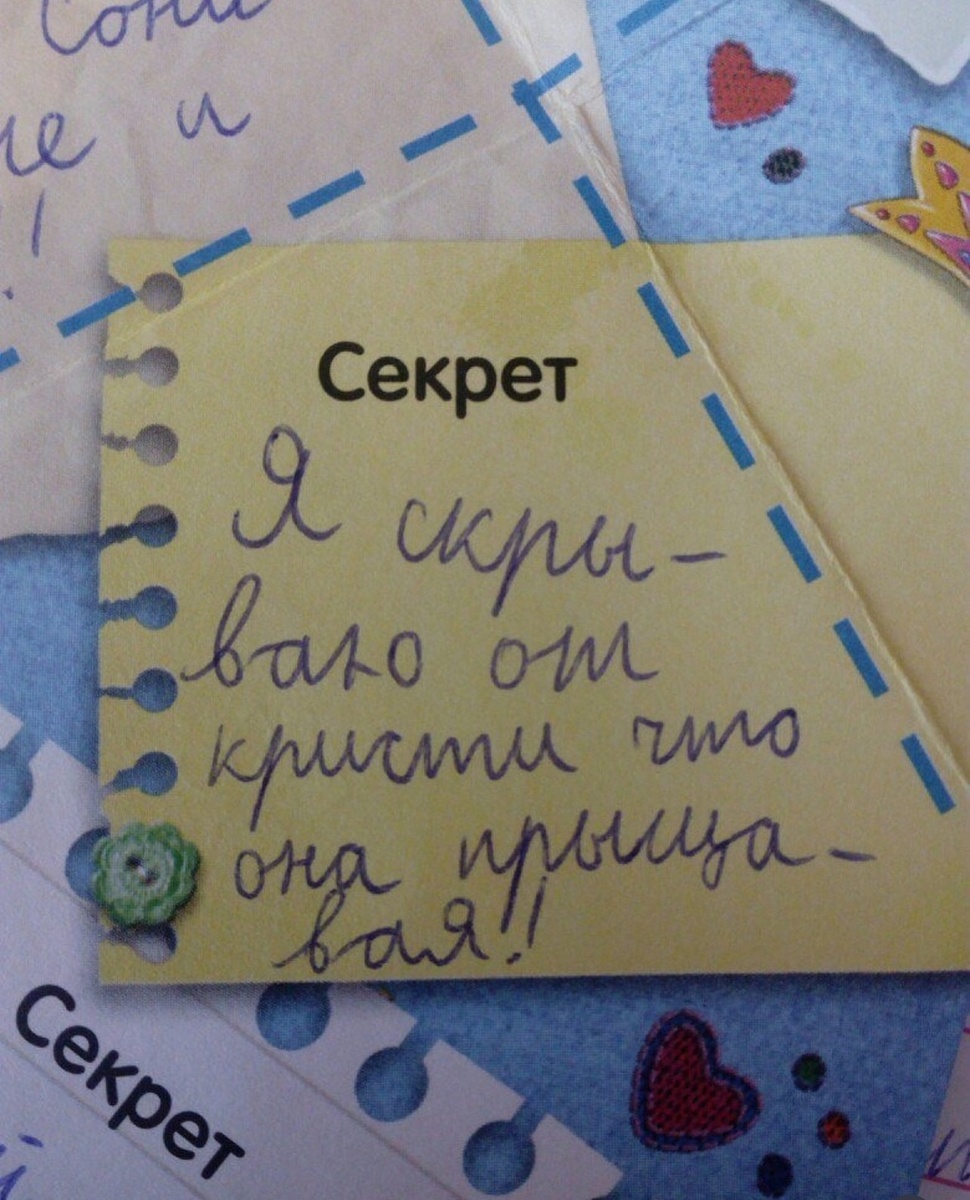 Сони
и
Секрет
Я скры-
ваю от
кристи что
она прыща-
вая!
Секрет